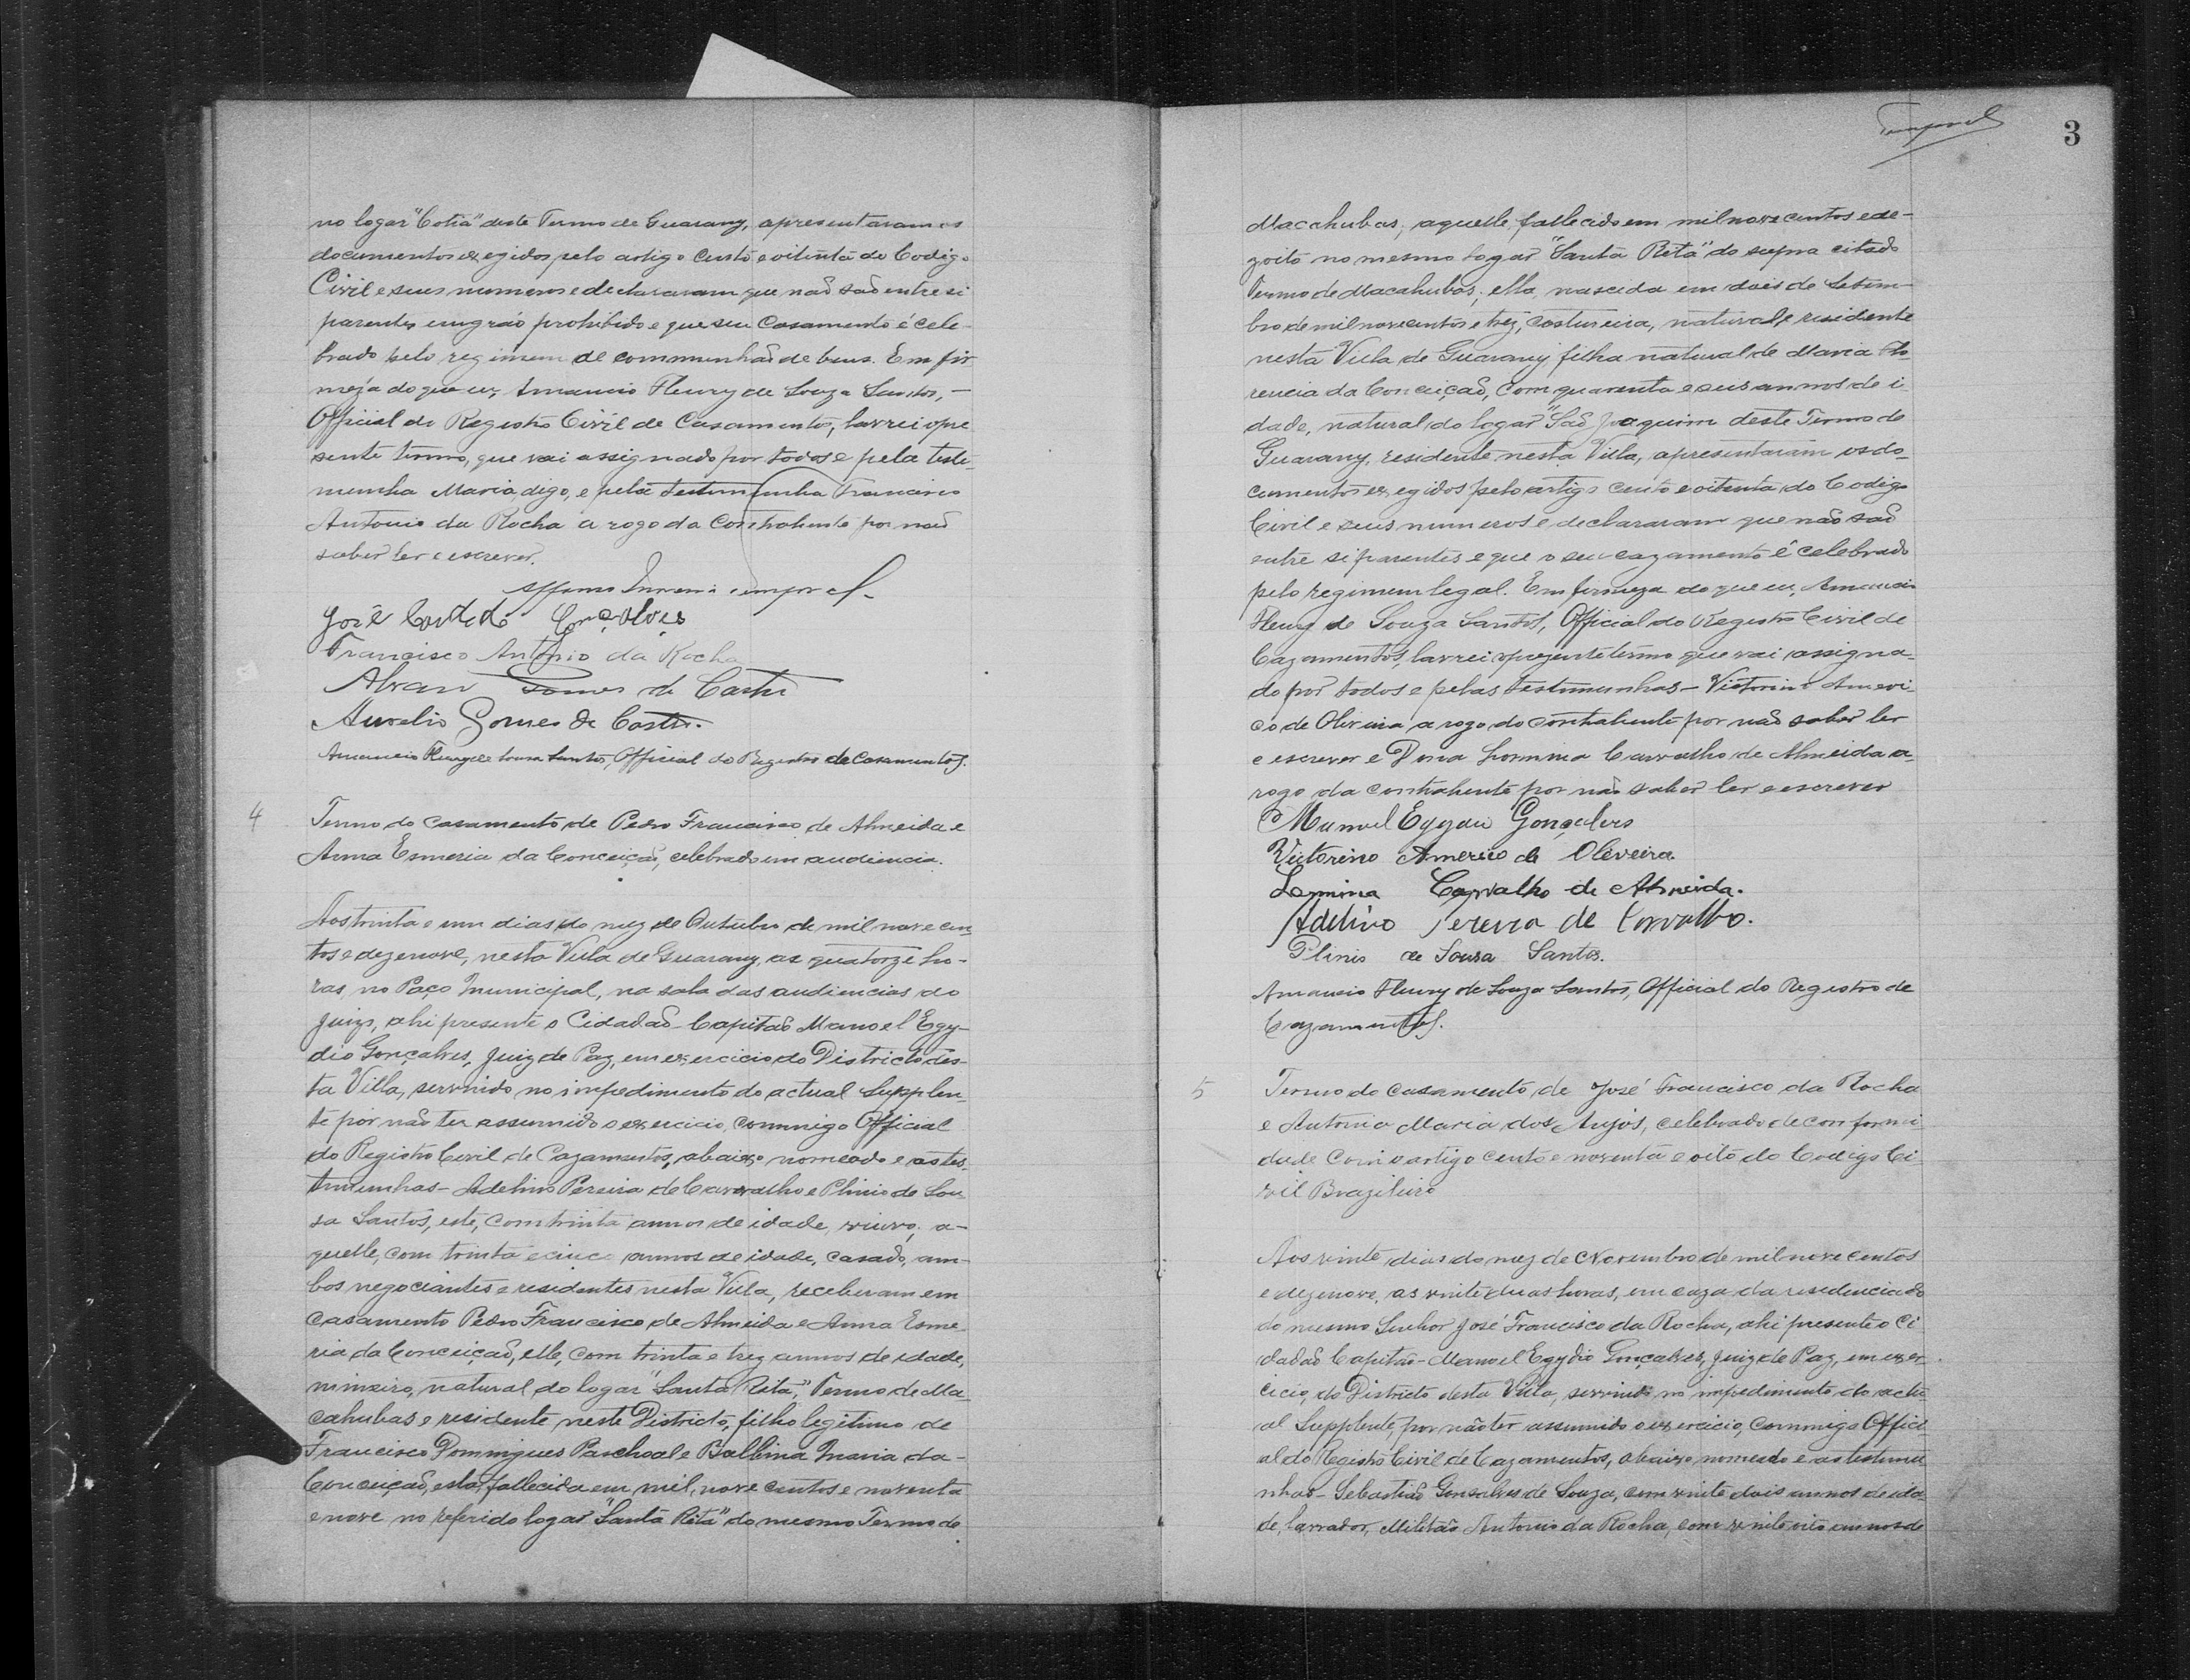 no logar "Cotia" deste Termo de Guarany, apresentaram os
documentos exegidos pelo artigo cento e oitenta do Codigo
Civil e seus numeros e declararam que não são entre si
parentes em gráo prohibido e que seu Casamento é cele-
brado pelo regimem de communhão de bens. Em fir
meza do que eu, Amancio Fleury de Souza Santos, -
Official do Registro Civil de Casamento, lavrei o pre
sente termo, que vai assignado por todos e pela teste-
munha Maria, digo, e pela testemunha Francisco
Antonio da Rocha a rogo da Contrahente por não
saber ler e escrever.
Affonso
José Gonçalves
Francisco Antonio da Rocha
Alvaro Gomes de Castro
Aurelio Gomes de Castro.
Amancio Fleury de Souza Santos, Official do Registro de Casamentos.
4
Termo do casamento de Pedro Francisco de Almeida e
Anna Esmeria da Conceição, celebrado em audiencia.
Aos trinta e um dias do mez de Outubro de mil nove cen
tos e dezenove, nesta Villa de Guarany, as quatorze ho-
ras, no Paço Municipal, na sala das audiencias do
Juizo, ahi presente o Cidadão Capitão Manoel Egy-
dio Gonçalves, Juiz de Paz, em exercicio do Districto des-
ta Villa, servindo no impedimento do actual Supplen-
te por não ter assumido o exercicio, commigo Official
do Registro Civil de Cazamentos, abaixo nomeado e as tes-
timunhas - Adelino Pereira de Carvalho e Plinio de Sou
sa Santos, este, com trinta annos de idade, viuvo; a-
quelle, com trinta e cinco annos de idade, casado, am-
bos negociantes e residentes nesta Villa, receberam em
Casamento Pedro Francisco de Almeida e Anna Esme
ria da Conceição, elle, com trinta e trez annos de idade,
mineiro, natural do logar "Santa Rita", Termo de Ma-
cahubas e residente neste Districto, filho legitimo de
Francisco Domingues Paschoal e Balbina Maria da -
Conceição, esta fallecida em mil nove centos e noventa
e nove no referido logar "Santa Rita" do mesmo Termo de
3
Macahubas, aquelle, fallecido em mil nove centos e de-
zoito no mesmo logar "Santa Rita" do supra citado
Termo de Macahubas; ella, nascida em dois de Setem-
bro de mil nove centos e trez, costureira, natural e residente
nesta Villa de Guarany filha natural de Maria Flo-
rencia da Conceição, com quarenta e seis annos de i
dade, natural do logar "São Joaquim deste Termo de
Guarany, residente nesta Villa, apresentaram os do-
cumentos exegidos pelo artigo cento e oitenta do Codigo
Civil e seus numeros e declararam que não são
entre si parentes e que o seu cazamento é celebrado
pelo regimem legal. Em firmeza do que eu, Amancio
Fleury de Souza Santos, Official do Registro Civil de
Cazamentos, lavrei o prezente termo que vai assigna-
do por todos e pelas testemunhas - Victorino Ameri-
co de Oliveira a rogo do contrahente por não saber ler
e escrever e Dona Lormina Carvalho de Almeida a-
rogo da contrahente por não saber ler e escrever
Manuel Egydio Gonçalves
Victorino Americo de Oliveira
Lormina Carvalho de Almeida.
Adelino Pereira de Carvalho.
Plinio de Sousa Santos.
Amancio Fleury de Souza Santos, Official do Registro de
Cazamentos.
5
Termo do casamento de José Francisco da Rocha
e Antonia Maria dos Anjos, celebrado de conformi
dade com o artigo cento e noventa e oito do Codigo Ci-
vil Brazileiro
Aos vinte dias do mez de Novembro de mil nove centos
e dezenove, as vinte duas horas, em caza da residencia do
do mesmo Senhor José Francisco da Rocha, ahi presente o Ci
dadão Capitão - Manoel Egydio Gonçalves, Juiz de Paz, em exer-
cicio, do Districto desta Villa, servindo no impedimento do actu
al Supplente, por não ter assumido o exercicio, commigo Offici
al do Registro Civil de Cazamentos, abaixo nomeado e as testemu
nhas - Sebastião Gonsalves de Souza, com vinte dois annos de ida-
de, lavrador, Militão Antonio da Rocha, com vinte oito annos de